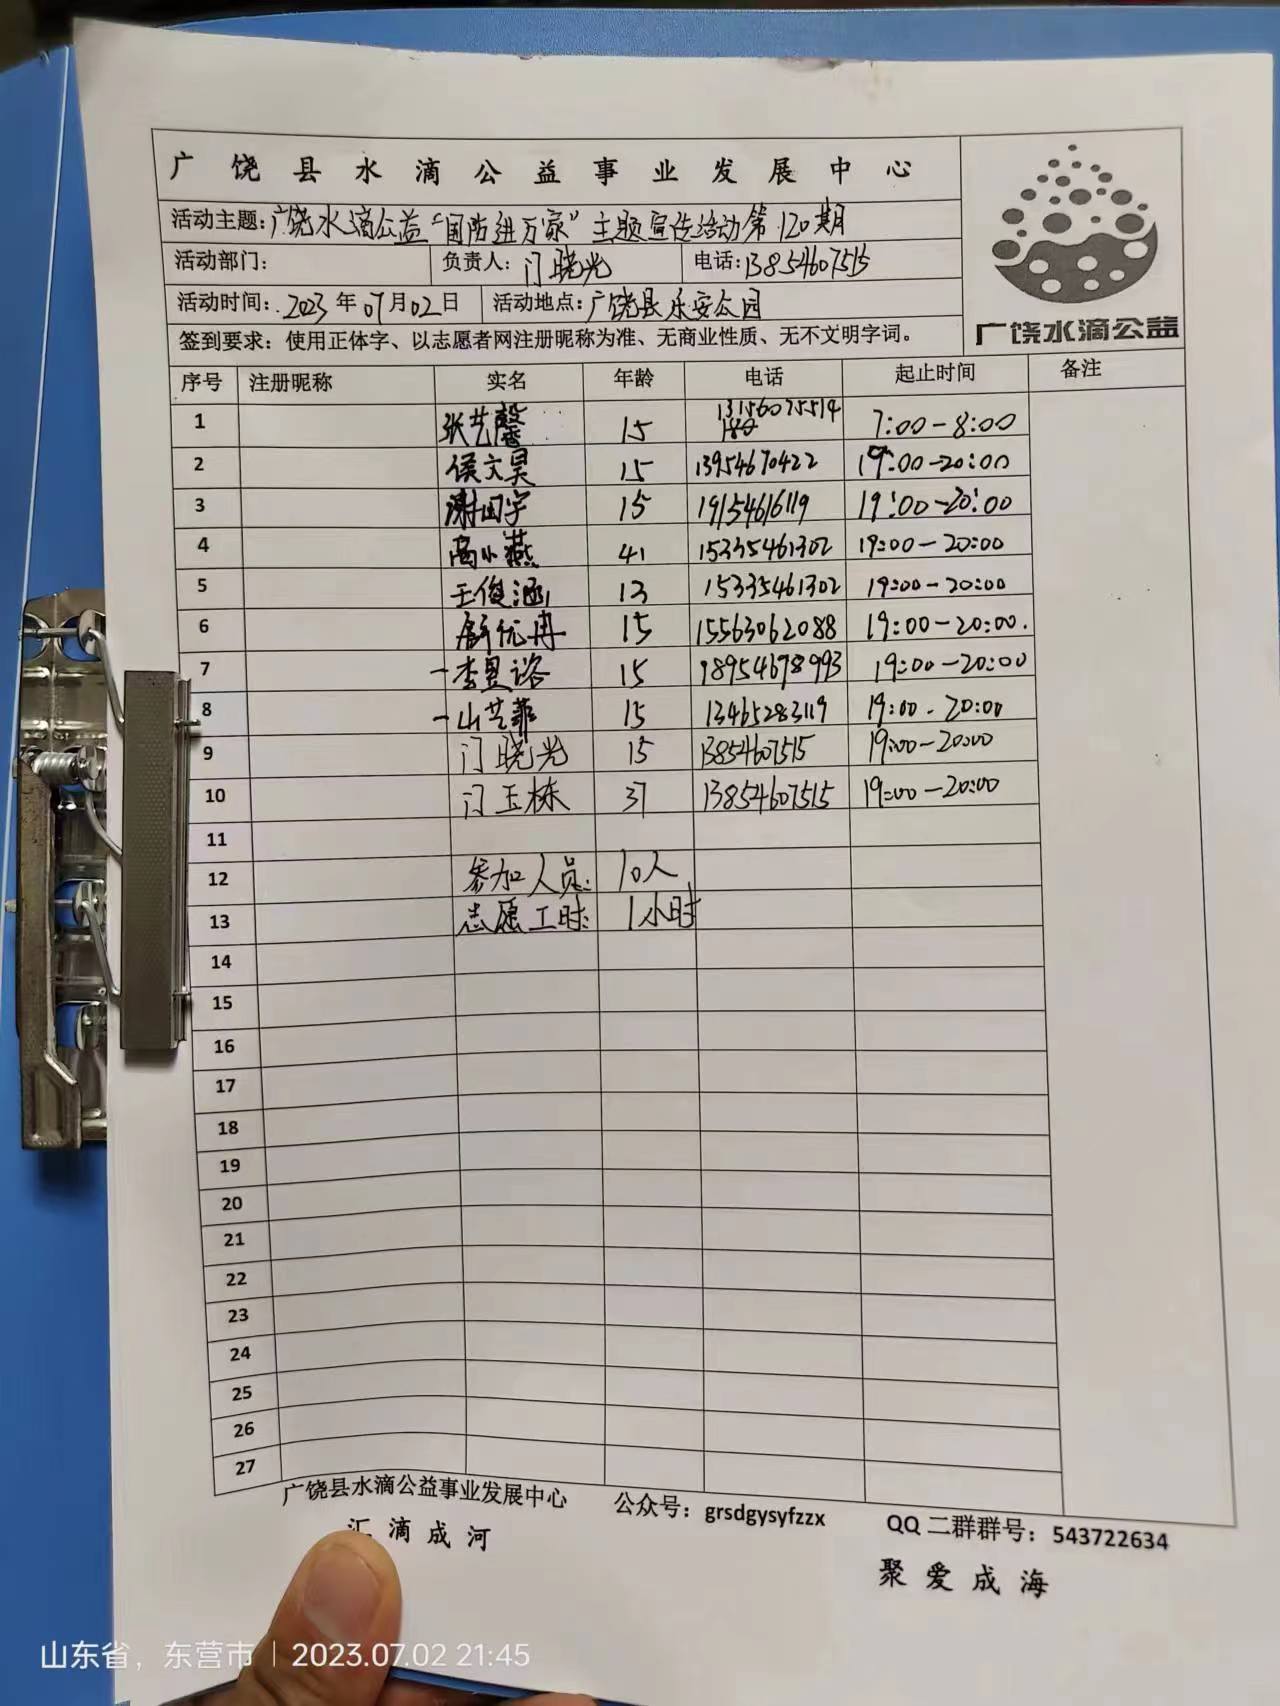 广饶县水滴公益事业发展中心
活动主题:广饶水滴公益“国防进万家”主题宣传活动第120期
活动部门: 负责人: 门晓光 电话:13854607515
活动时间: 2023年07月02日 活动地点:广饶县乐安公园
签到要求：使用正体字、以志愿者网注册昵称为准、无商业性质、无不文明字词。
广饶水滴公益
序号 注册昵称 实名 年龄 电话 起止时间 备注
1 张艺馨 15 13156075514 7:00-8:00
2 侯文昊 15 13954670422 19:00-20:00
3 谢田宇 15 19154616119 19:00-20:00
4 高小燕 41 15335461302 19:00-20:00
5 王俊涵 13 15335461302 19:00-20:00
6 优冉 15 15563062088 19:00-20:00.
7 -李昱谘 15 18954678993 19:00-20:00
8 -山艺菲 15 13465283119 19:00-20:00
9 门晓光 15 13854607515 19:00-20:00
10 门玉栋 37 13854607515 19:00-20:00
11
12 参加人员: 10人
13 志愿工时: 1小时
14
15
16
17
18
19
20
21
22
23
24
25
26
27
广饶县水滴公益事业发展中心 公众号：grsdgysyfzzx QQ二群群号：543722634
汇滴成河 聚爱成海
山东省，东营市 | 2023.07.02 21:45